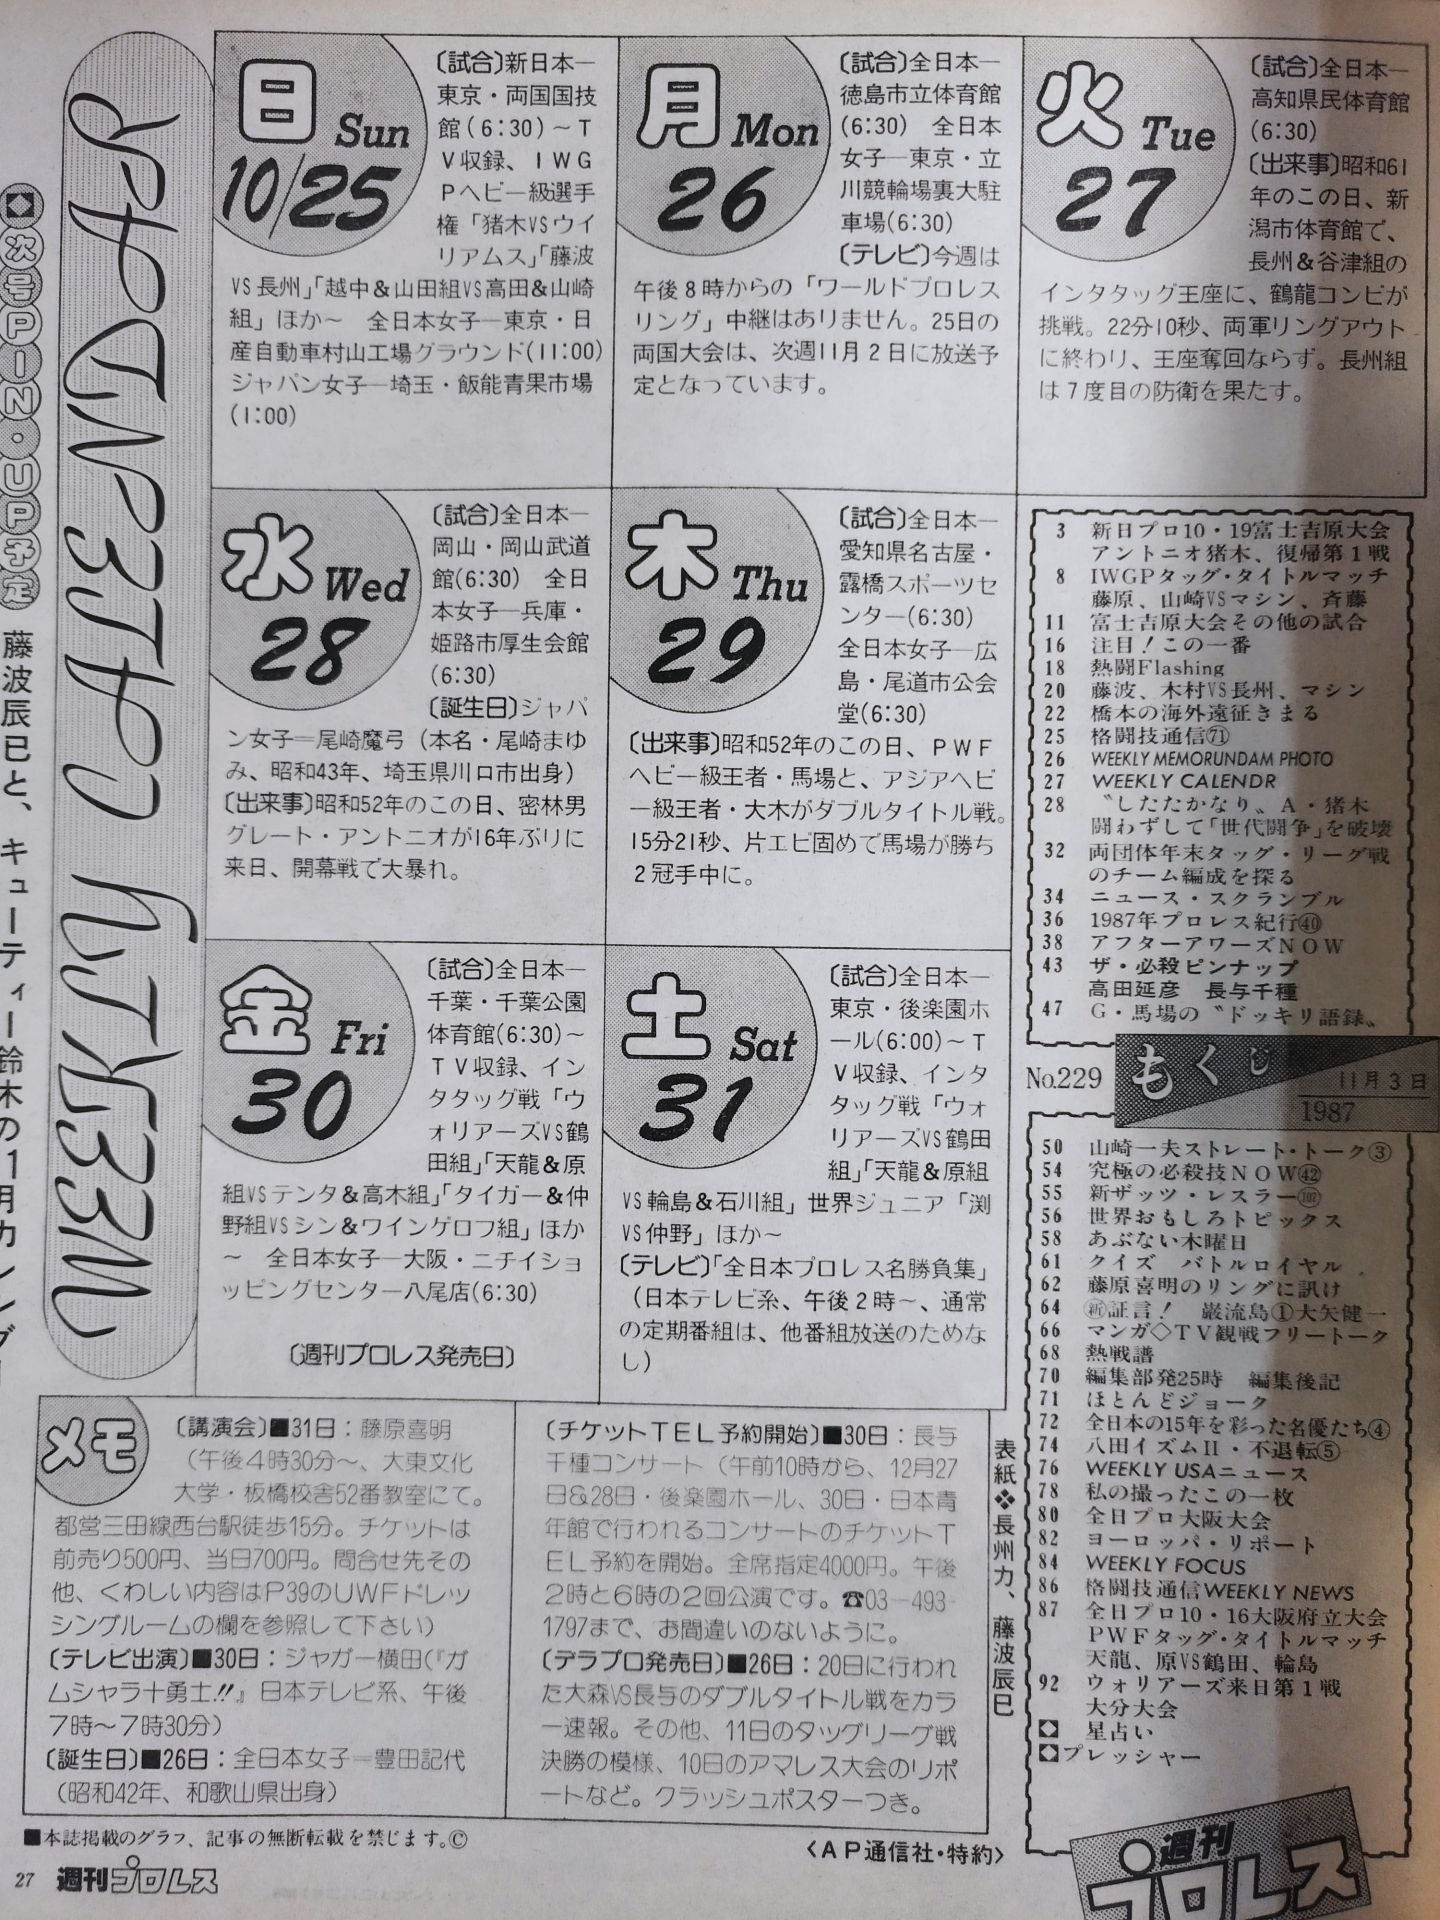 WEEKLY カレンダー
◆次号PINUP予定 藤波辰巳と、キューティー鈴木の
日 Sun
10/25
〔試合〕新日本―
東京・両国国技
館(6:30)～T
V収録、IWG
Pヘビー級選手
権「猪木VSウイ
リアムス」「藤波
VS長州」「越中&山田組VS高田&山崎
組」ほか～ 全日本女子―東京・日
産自動車村山工場グラウンド(11:00)
ジャパン女子―埼玉・飯能青果市場
(1:00)
月 Mon
26
〔試合〕全日本―
徳島市立体育館
(6:30) 全日本
女子―東京・立
川競輪場裏大駐
車場(6:30)
〔テレビ〕今週は
午後8時からの「ワールドプロレス
リング」中継はありません。25日の
両国大会は、次週11月2日に放送予
定となっています。
火 Tue
27
〔試合〕全日本―
高知県民体育館
(6:30)
〔出来事〕昭和61
年のこの日、新
潟市体育館で、
長州&谷津組の
インタタッグ王座に、鶴龍コンビが
挑戦。22分10秒、両軍リングアウト
に終わり、王座奪回ならず。長州組
は7度目の防衛を果たす。
水 Wed
28
〔試合〕全日本―
岡山・岡山武道
館(6:30) 全日
本女子―兵庫・
姫路市厚生会館
(6:30)
〔誕生日〕ジャパ
ン女子―尾崎魔弓(本名・尾崎まゆ
み、昭和43年、埼玉県川口市出身)
〔出来事〕昭和52年のこの日、密林男
グレート・アントニオが16年ぶりに
来日、開幕戦で大暴れ。
木 Thu
29
〔試合〕全日本―
愛知県名古屋・
露橋スポーツセ
ンター(6:30)
全日本女子―広
島・尾道市公会
堂(6:30)
〔出来事〕昭和52年のこの日、PWF
ヘビー級王者・馬場と、アジアヘビ
ー級王者・大木がダブルタイトル戦。
15分21秒、片エビ固めで馬場が勝ち
2冠手中に。
金 Fri
30
〔試合〕全日本―
千葉・千葉公園
体育館(6:30)～
TV収録、イン
タタッグ戦「ウ
ォリアーズVS鶴
田組」「天龍&原
組VSテンタ&高木組」「タイガー&仲
野組VSシン&ワインゲロフ組」ほか
～ 全日本女子―大阪・ニチイショ
ッピングセンター八尾店(6:30)
〔週刊プロレス発売日〕
土 Sat
31
〔試合〕全日本―
東京・後楽園ホ
ール(6:00)～T
V収録、インタ
タッグ戦「ウォ
リアーズVS鶴田
組」「天龍&原組
VS輪島&石川組」世界ジュニア「渕
VS仲野」ほか～
〔テレビ〕「全日本プロレス名勝負集」
(日本テレビ系、午後2時～、通常
の定期番組は、他番組放送のためな
し)
メモ
〔講演会〕■31日:藤原喜明
(午後4時30分～、大東文化
大学・板橋校舎52番教室にて。
都営三田線西台駅徒歩15分。チケットは
前売り500円、当日700円。問合せ先その
他、くわしい内容はP39のUWFドレッ
シングルームの欄を参照して下さい)
〔テレビ出演〕■30日:ジャガー横田(『ガ
ムシャラ十勇士!!』日本テレビ系、午後
7時～7時30分)
〔誕生日〕■26日:全日本女子=豊田記代
(昭和42年、和歌山県出身)
〔チケットTEL予約開始〕■30日:長与
千種コンサート(午前10時から、12月27
日&28日・後楽園ホール、30日・日本青
年館で行われるコンサートのチケットT
EL予約を開始。全席指定4000円。午後
2時と6時の2回公演です。☎03―493―
1797まで、お間違いのないように。
〔デラプロ発売日〕■26日:20日に行われ
た大森VS長与のダブルタイトル戦をカラ
ー速報。その他、11日のタッグリーグ戦
決勝の模様、10日のアマレス大会のリポ
ートなど。クラッシュポスターつき。
表紙❖長州力、藤波辰巳
3 新日プロ10・19富士吉原大会
アントニオ猪木、復帰第1戦
8 IWGPタッグ・タイトルマッチ
藤原、山崎VSマシン、斉藤
11 富士吉原大会その他の試合
16 注目!この一番
18 熱闘Flashing
20 藤波、木村VS長州、マシン
22 橋本の海外遠征きまる
25 格闘技通信㉛
26 WEEKLY MEMORUNDAM PHOTO
27 WEEKLY CALENDR
28 〝したたかなり〟A・猪木
闘わずして「世代闘争」を破壊
32 両団体年末タッグ・リーグ戦
のチーム編成を探る
34 ニュース・スクランブル
36 1987年プロレス紀行㊵
38 アフターアワーズNOW
43 ザ・必殺ピンナップ
高田延彦 長与千種
47 G・馬場の〝ドッキリ語録〟
No.229 もくじ 11月3日
1987
50 山崎一夫ストレート・トーク③
54 究極の必殺技NOW㊷
55 新ザッツ・レスラー(102)
56 世界おもしろトピックス
58 あぶない木曜日
61 クイズ バトルロイヤル
62 藤原喜明のリングに訊け
64 ㊟証言! 巌流島①大矢健一
66 マンガ◇TV観戦フリートーク
68 熱戦譜
70 編集部発25時 編集後記
71 ほとんどジョーク
72 全日本の15年を彩った名優たち④
74 八田イズムII・不退転⑤
76 WEEKLY USAニュース
78 私の撮ったこの一枚
80 全日プロ大阪大会
82 ヨーロッパ・リポート
84 WEEKLY FOCUS
86 格闘技通信WEEKLY NEWS
87 全日プロ10・16大阪府立大会
PWFタッグ・タイトルマッチ
天龍、原VS鶴田、輪島
92 ウォリアーズ来日第1戦
大分大会
◆ 星占い
◆プレッシャー
週刊プロレス
■本誌掲載のグラフ、記事の無断転載を禁じます。©
〈AP通信社・特約〉
27 週刊プロレス